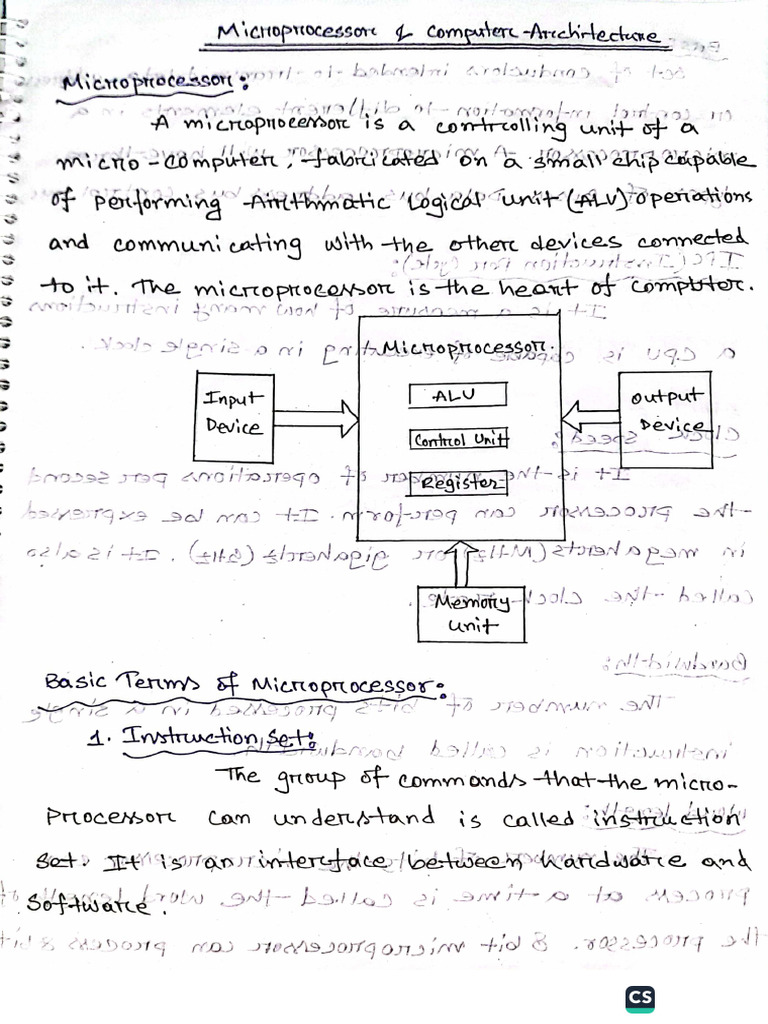 Microprocessor & Computer Architecture
Microprocessor:
A microprocessor is a controlling unit of a
micro-computer, fabricated on a small chip capable
of performing Arithmatic Logical Unit (ALU) operations
and communicating with the other devices connected
to it. The microprocessor is the heart of computer.
Microprocessor.
Input
Device
ALU
Control Unit
Register
Output
Device
Memory
Unit
Basic Terms of Microprocessor:
1. Instruction Set:
The group of commands that the micro-
processor can understand is called instruction
set. It is an interface between hardware and
software.
CS